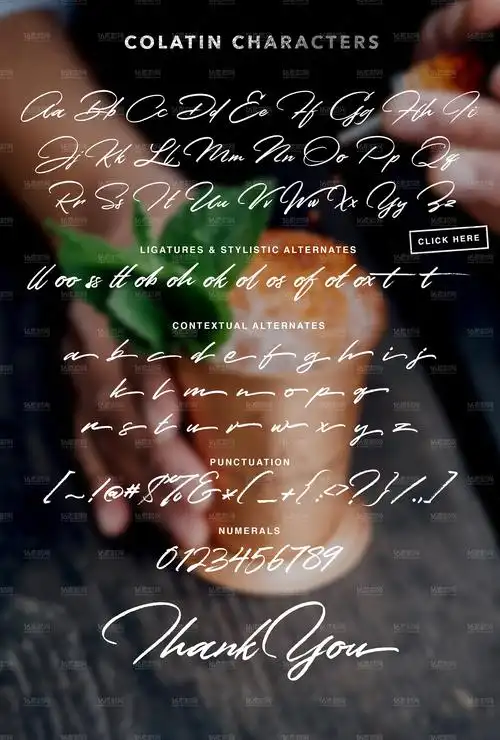 COLATIN CHARACTERS
Aa Bb Cc Dd Ee Ff Gg Hh Ii
Jj Kk Ll Mm Nn Oo Pp Qq
Rr Ss Tt Uu Vv Ww Xx Yy Zz
CLICK HERE
LIGATURES & STYLISTIC ALTERNATES
ll oo ss tt ob oh ok ol os of ot ox t t
CONTEXTUAL ALTERNATES
a b c d e f g h i j
k l m n o p q
r s t u v w x y z
PUNCTUATION
[ ~ ! @ # $ % & * ( _ + { : < > ? } / . , ]
NUMERALS
0123456789
Thank You